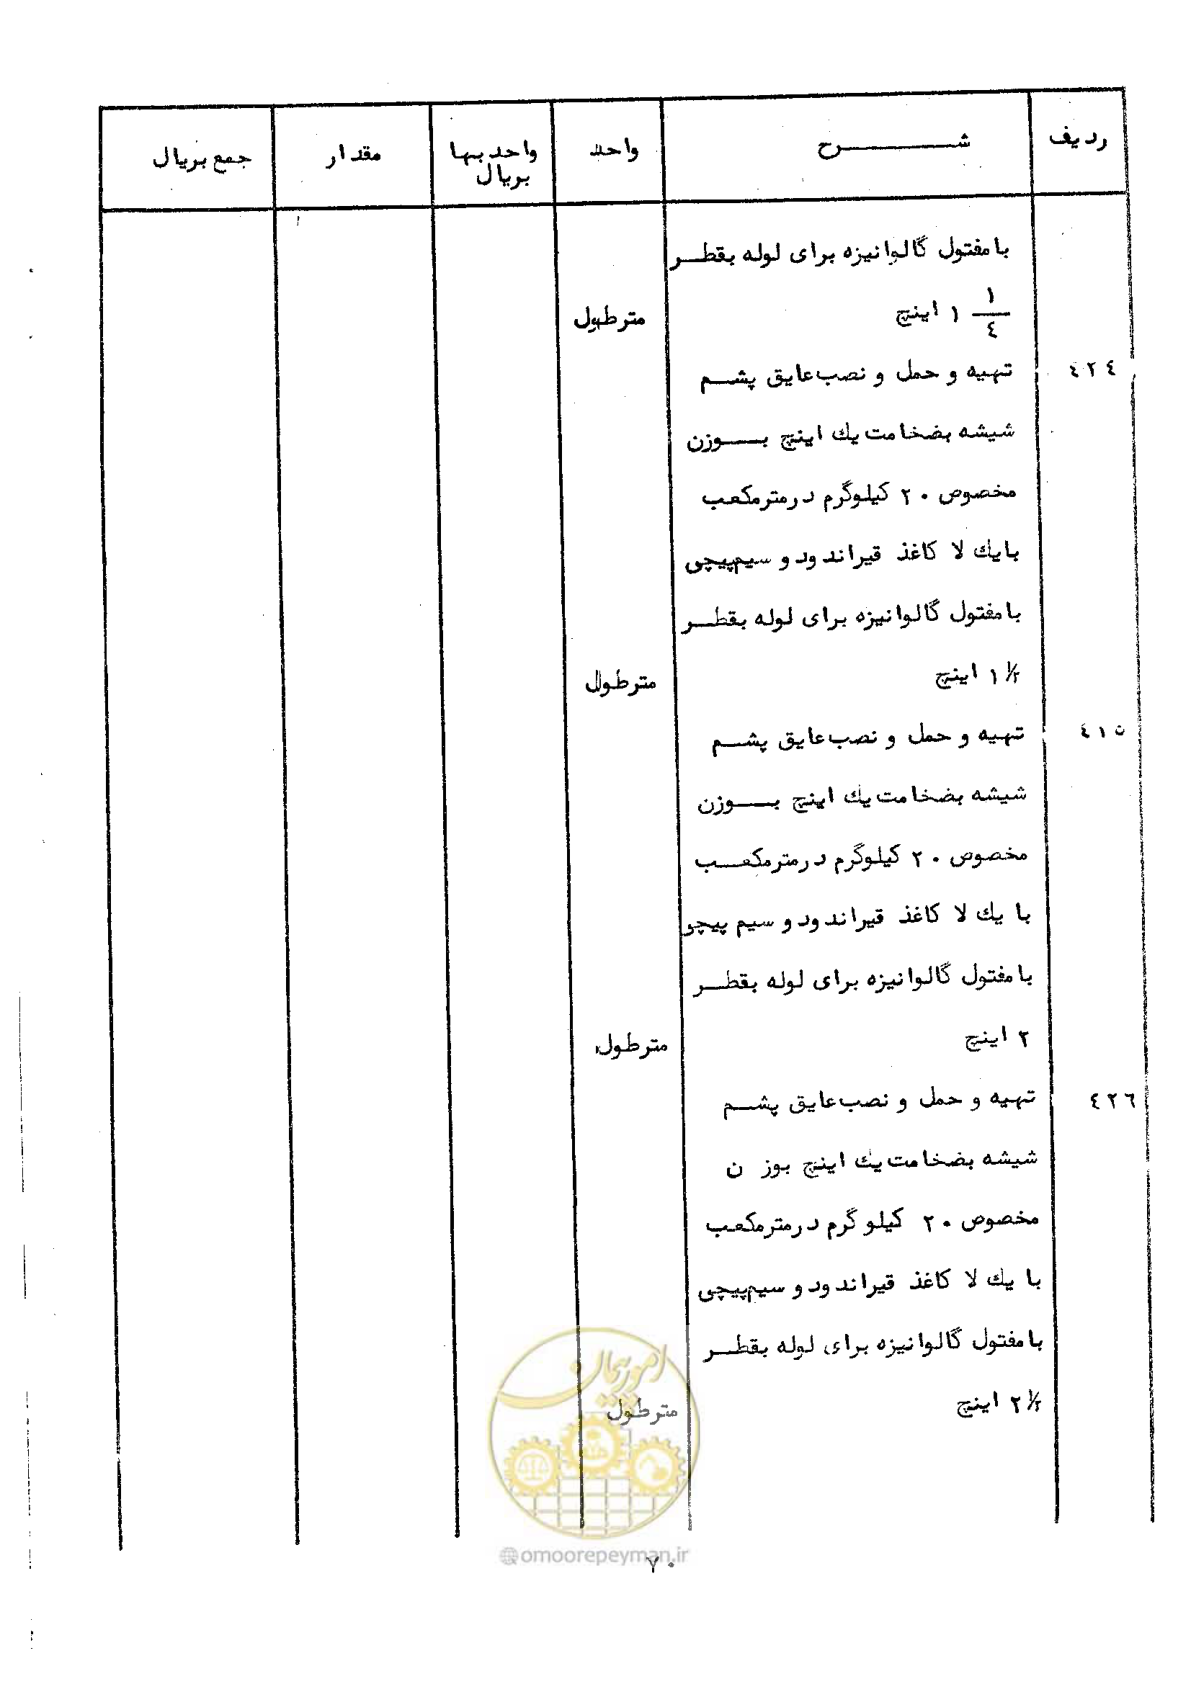 ردیف شرح واحد واحد بها بریال مقدار جمع بریال
با مفتول گالوانیزه برای لوله بقطر
۱ ۱/٤ اینچ مترطول
٤٢٤ تهیه و حمل و نصب عایق پشم
شیشه بضخامت یك اینچ بوزن
مخصوص ٢٠ کیلوگرم درمترمکعب
با یك لا کاغذ قیراندود و سیم‌پیچی
با مفتول گالوانیزه برای لوله بقطر
۱ ۱/٢ اینچ مترطول
٤١٥ تهیه و حمل و نصب عایق پشم
شیشه بضخامت یك اینچ بوزن
مخصوص ٢٠ کیلوگرم درمترمکعب
با یك لا کاغذ قیراندود و سیم پیچی
با مفتول گالوانیزه برای لوله بقطر
٢ اینچ مترطول
٤٢٦ تهیه و حمل و نصب عایق پشم
شیشه بضخامت یك اینچ بوز ن
مخصوص ٢٠ کیلو گرم درمترمکعب
با یك لا کاغذ قیراندود و سیم‌پیچی
با مفتول گالوانیزه برای لوله بقطر
٢ ۱/٢ اینچ مترطول
امور پیمان
@omoorepeyman.ir
٧٠